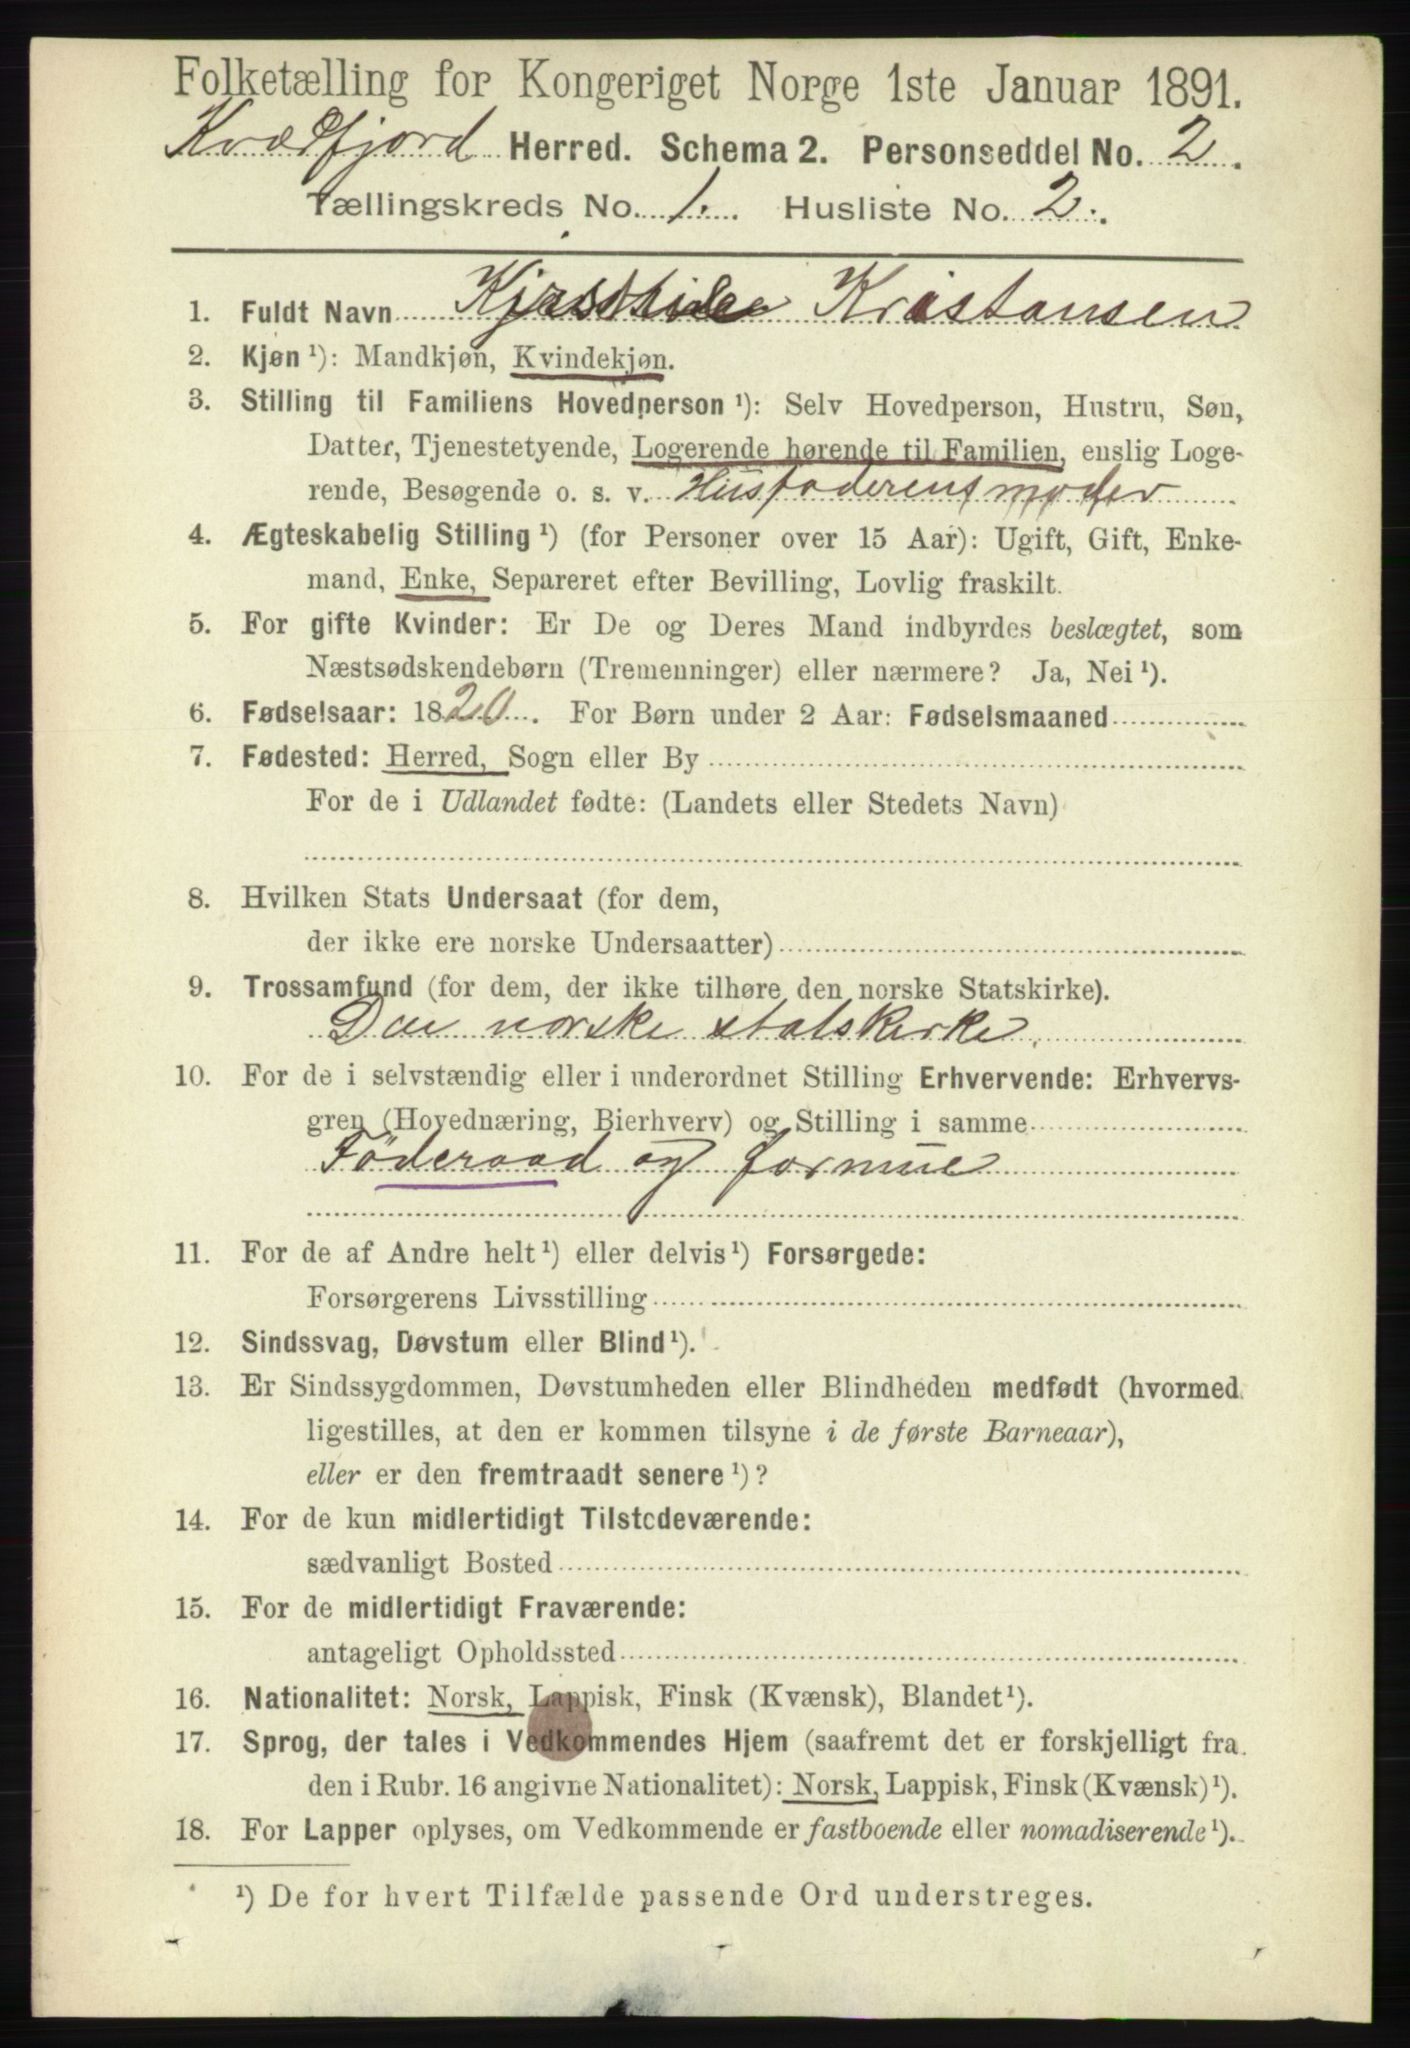 Folketælling for Kongeriget Norge 1ste Januar 1891.
Kvædfjord Herred. Schema 2. Personseddel No. 2.
Tællingskreds No. 1. Husliste No. 2.
1. Fuldt Navn Kristansen
2. Kjøn ¹): Mandkjøn, Kvindekjøn.
3. Stilling til Familiens Hovedperson ¹): Selv Hovedperson, Hustru, Søn,
Datter, Tjenestetyende, Logerende hørende til Familien, enslig Loge-
rende, Besøgende o. s. v. Husfaderens moder
4. Ægteskabelig Stilling ¹) (for Personer over 15 Aar): Ugift, Gift, Enke-
mand, Enke, Separeret efter Bevilling, Lovlig fraskilt.
5. For gifte Kvinder: Er De og Deres Mand indbyrdes beslægtet, som
Næstsødskendebørn (Tremenninger) eller nærmere? Ja, Nei ¹).
6. Fødselsaar: 1820. For Børn under 2 Aar: Fødselsmaaned
7. Fødested: Herred, Sogn eller By
For de i Udlandet fødte: (Landets eller Stedets Navn)
8. Hvilken Stats Undersaat (for dem,
der ikke ere norske Undersaatter)
9. Trossamfund (for dem, der ikke tilhøre den norske Statskirke).
Den norske statskirke
10. For de i selvstændig eller i underordnet Stilling Erhvervende: Erhvervs-
gren (Hovednæring, Bierhverv) og Stilling i samme
Föderaad og formue
11. For de af Andre helt ¹) eller delvis ¹) Forsørgede:
Forsørgerens Livsstilling
12. Sindssvag, Døvstum eller Blind ¹).
13. Er Sindssygdommen, Døvstumheden eller Blindheden medfødt (hvormed
ligestilles, at den er kommen tilsyne i de første Barneaar),
eller er den fremtraadt senere ¹)?
14. For de kun midlertidigt Tilstedeværende:
sædvanligt Bosted
15. For de midlertidigt Fraværende:
antageligt Opholdssted
16. Nationalitet: Norsk, Lappisk, Finsk (Kvænsk), Blandet ¹).
17. Sprog, der tales i Vedkommendes Hjem (saafremt det er forskjelligt fra
den i Rubr. 16 angivne Nationalitet): Norsk, Lappisk, Finsk (Kvænsk) ¹).
18. For Lapper oplyses, om Vedkommende er fastboende eller nomadiserende ¹).
¹) De for hvert Tilfælde passende Ord understreges.